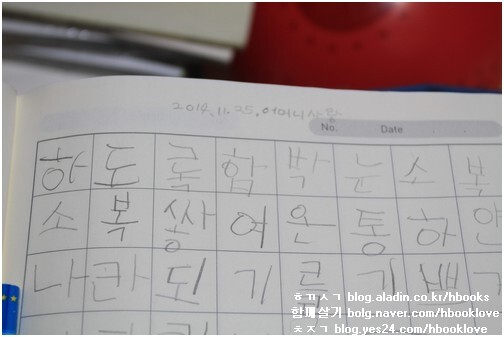 2014.11.25. 어머니사랑
No. Date
하 도 록 함 박 눈 소 복
소 복 쌓 여 온 통 하
나 라 되 기 를 기
ㅎㄲㅅㄱ blog.aladin.co.kr/hbooks
함께살기 bolg.naver.com/hbooklove
ㅊㅈㄱ blog.yes24.com/hbooklove